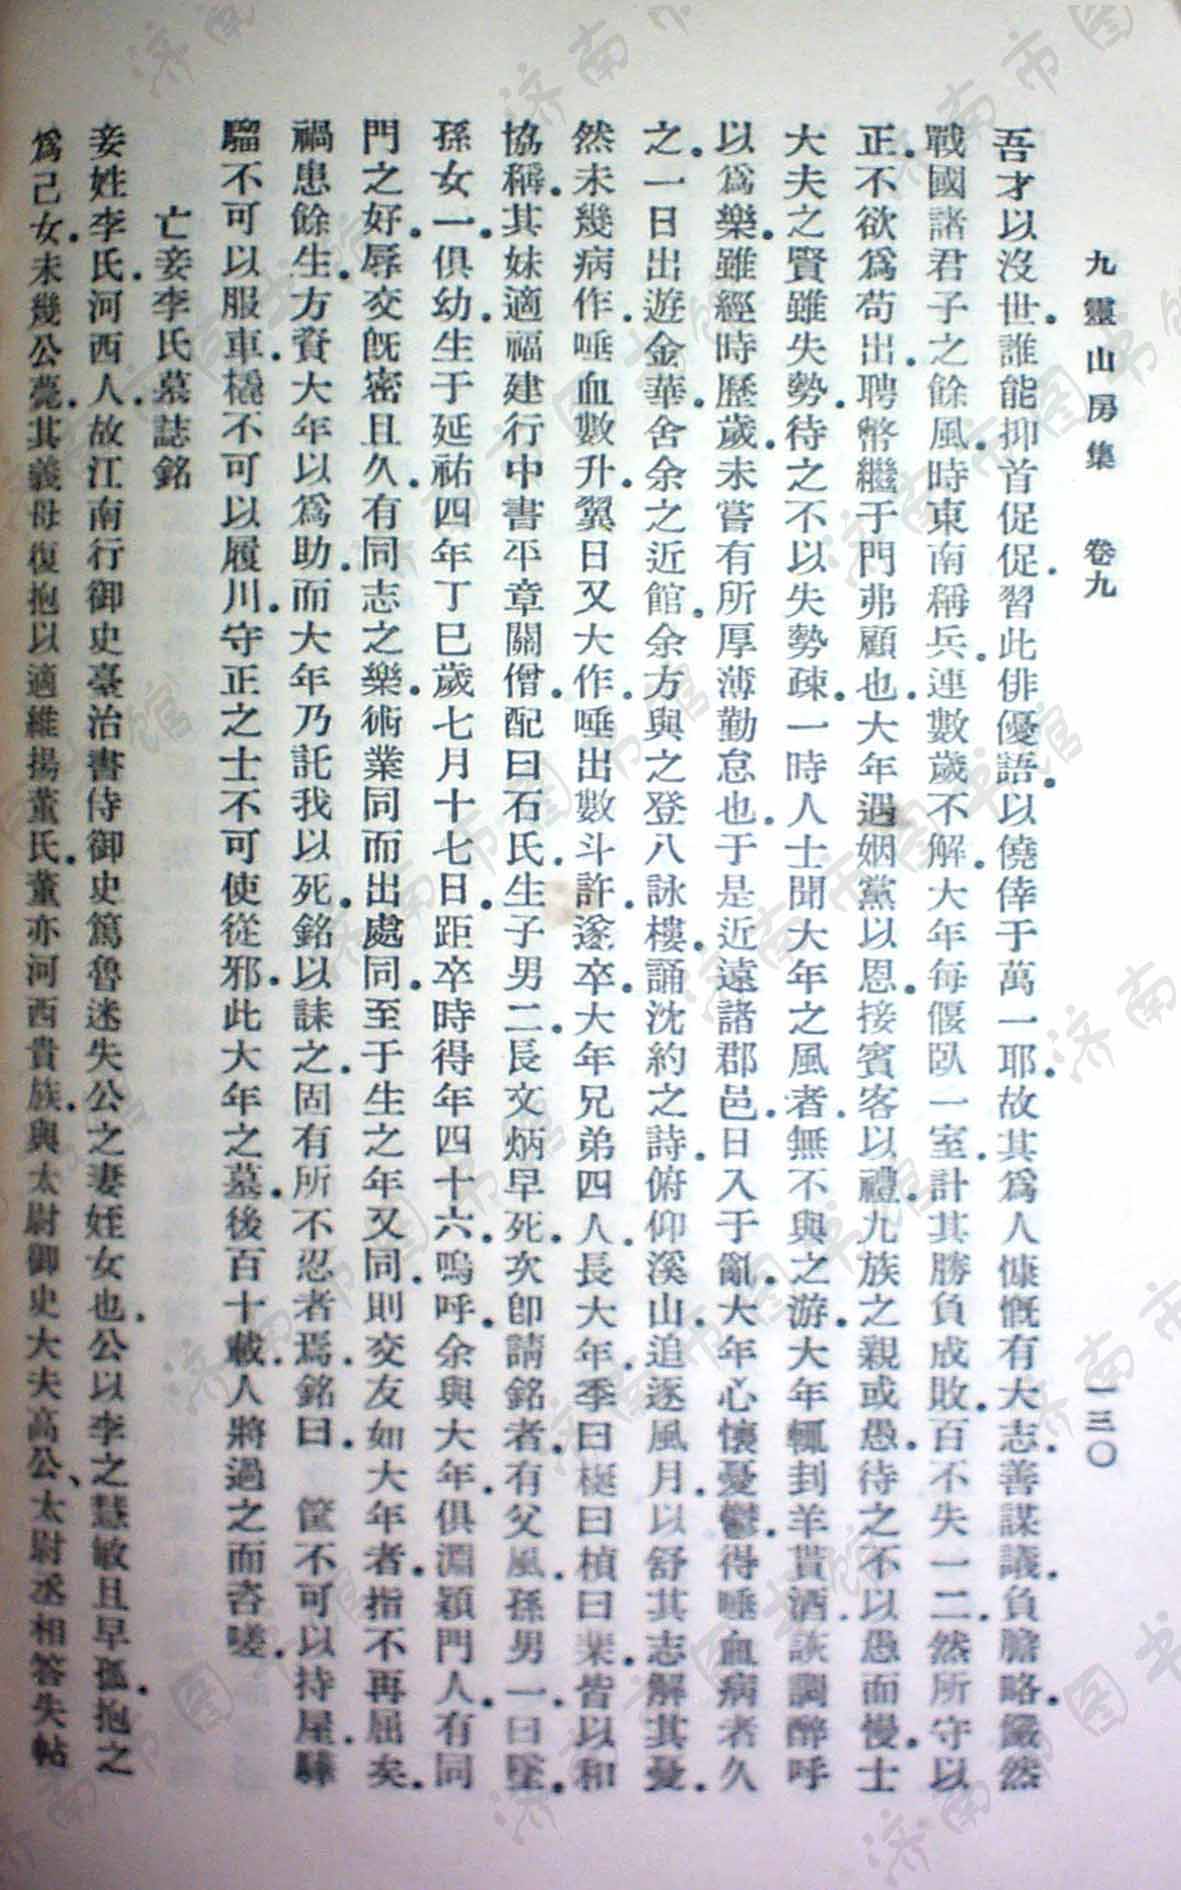 九靈山房集　卷九　一三〇
吾才以沒世。誰能抑首促促。習此俳優語。以僥倖于萬一耶。故其爲人慷慨有大志。善謀議。負膽略。儼然
戰國諸君子之餘風。時東南稱兵。連數歲不解。大年每偃臥一室。計其勝負成敗。百不失一二。然所守以
正。不欲爲苟出。聘幣繼于門弗顧也。大年遇姻黨以恩。接賓客以禮。九族之親或愚。待之不以愚而慢。士
大夫之賢雖失勢。待之不以失勢疎。一時人士聞大年之風者。無不與之游。大年輒刲羊貰酒。詼調醉呼
以爲樂。雖經時歷歲。未嘗有所厚薄勤怠也。于是近遠諸郡邑。日入于亂。大年心懷憂鬱。得唾血病者久
之。一日出遊金華。舍余之近館。余方與之登八詠樓。誦沈約之詩。俯仰溪山。追逐風月。以舒其志解其憂。
然未幾病作。唾血數升。翼日又大作。唾出數斗許。遂卒。大年兄弟四人。長大年。季曰梃曰楨曰棐。皆以和
協稱。其妹適福建行中書平章關僧。配曰石氏。生子男二。長文炳早死。次卽請銘者。有父風。孫男一曰墜。
孫女一。俱幼。生于延祐四年丁巳歲七月十七日。距卒時得年四十六。嗚呼。余與大年。俱淵穎門人。有同
門之好。辱交旣密且久。有同志之樂。術業同而出處同。至于生之年又同。則交友如大年者。指不再屈矣。
禍患餘生。方賚大年以爲助。而大年乃託我以死。銘以誄之。固有所不忍者焉。銘曰。　筐不可以持屋。驊
騮不可以服車。橇不可以履川。守正之士不可使從邪。此大年之墓。後百十載。人將過之而咨嗟。
亡妾李氏墓誌銘
妾姓李氏。河西人。故江南行御史臺治書侍御史篤魯迷失公之妻姪女也。公以李之慧敏且早孤。抱之
爲己女。未幾公薨。其義母復抱以適維揚董氏。董亦河西貴族。與太尉御史大夫高公、太尉丞相答失帖